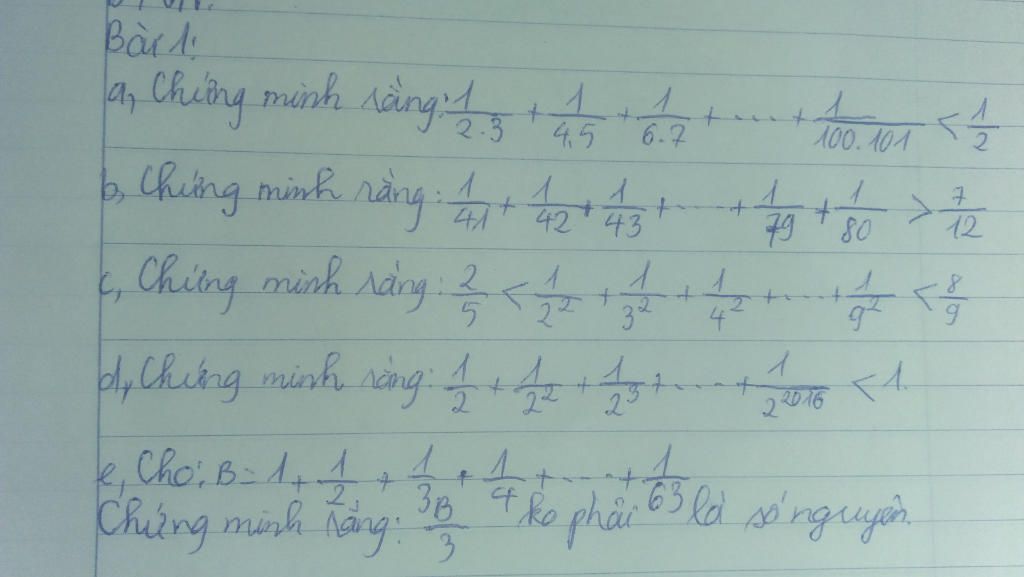 Bài 1:
a, Chứng minh rằng: 1/2.3 + 1/4.5 + 1/6.7 + .... + 1/100.101 < 1/2
b, Chứng minh rằng: 1/41 + 1/42 + 1/43 + .... + 1/79 + 1/80 > 7/12
c, Chứng minh rằng: 2/5 < 1/2² + 1/3² + 1/4² + .... + 1/9² < 8/9
d, Chứng minh rằng: 1/2 + 1/2² + 1/2³ + .... + 1/2²⁰¹⁶ < 1.
e, Cho: B = 1 + 1/2 + 1/3 + 1/4 + .... + 1/63
Chứng minh rằng: B/3 ko phải là số nguyên.